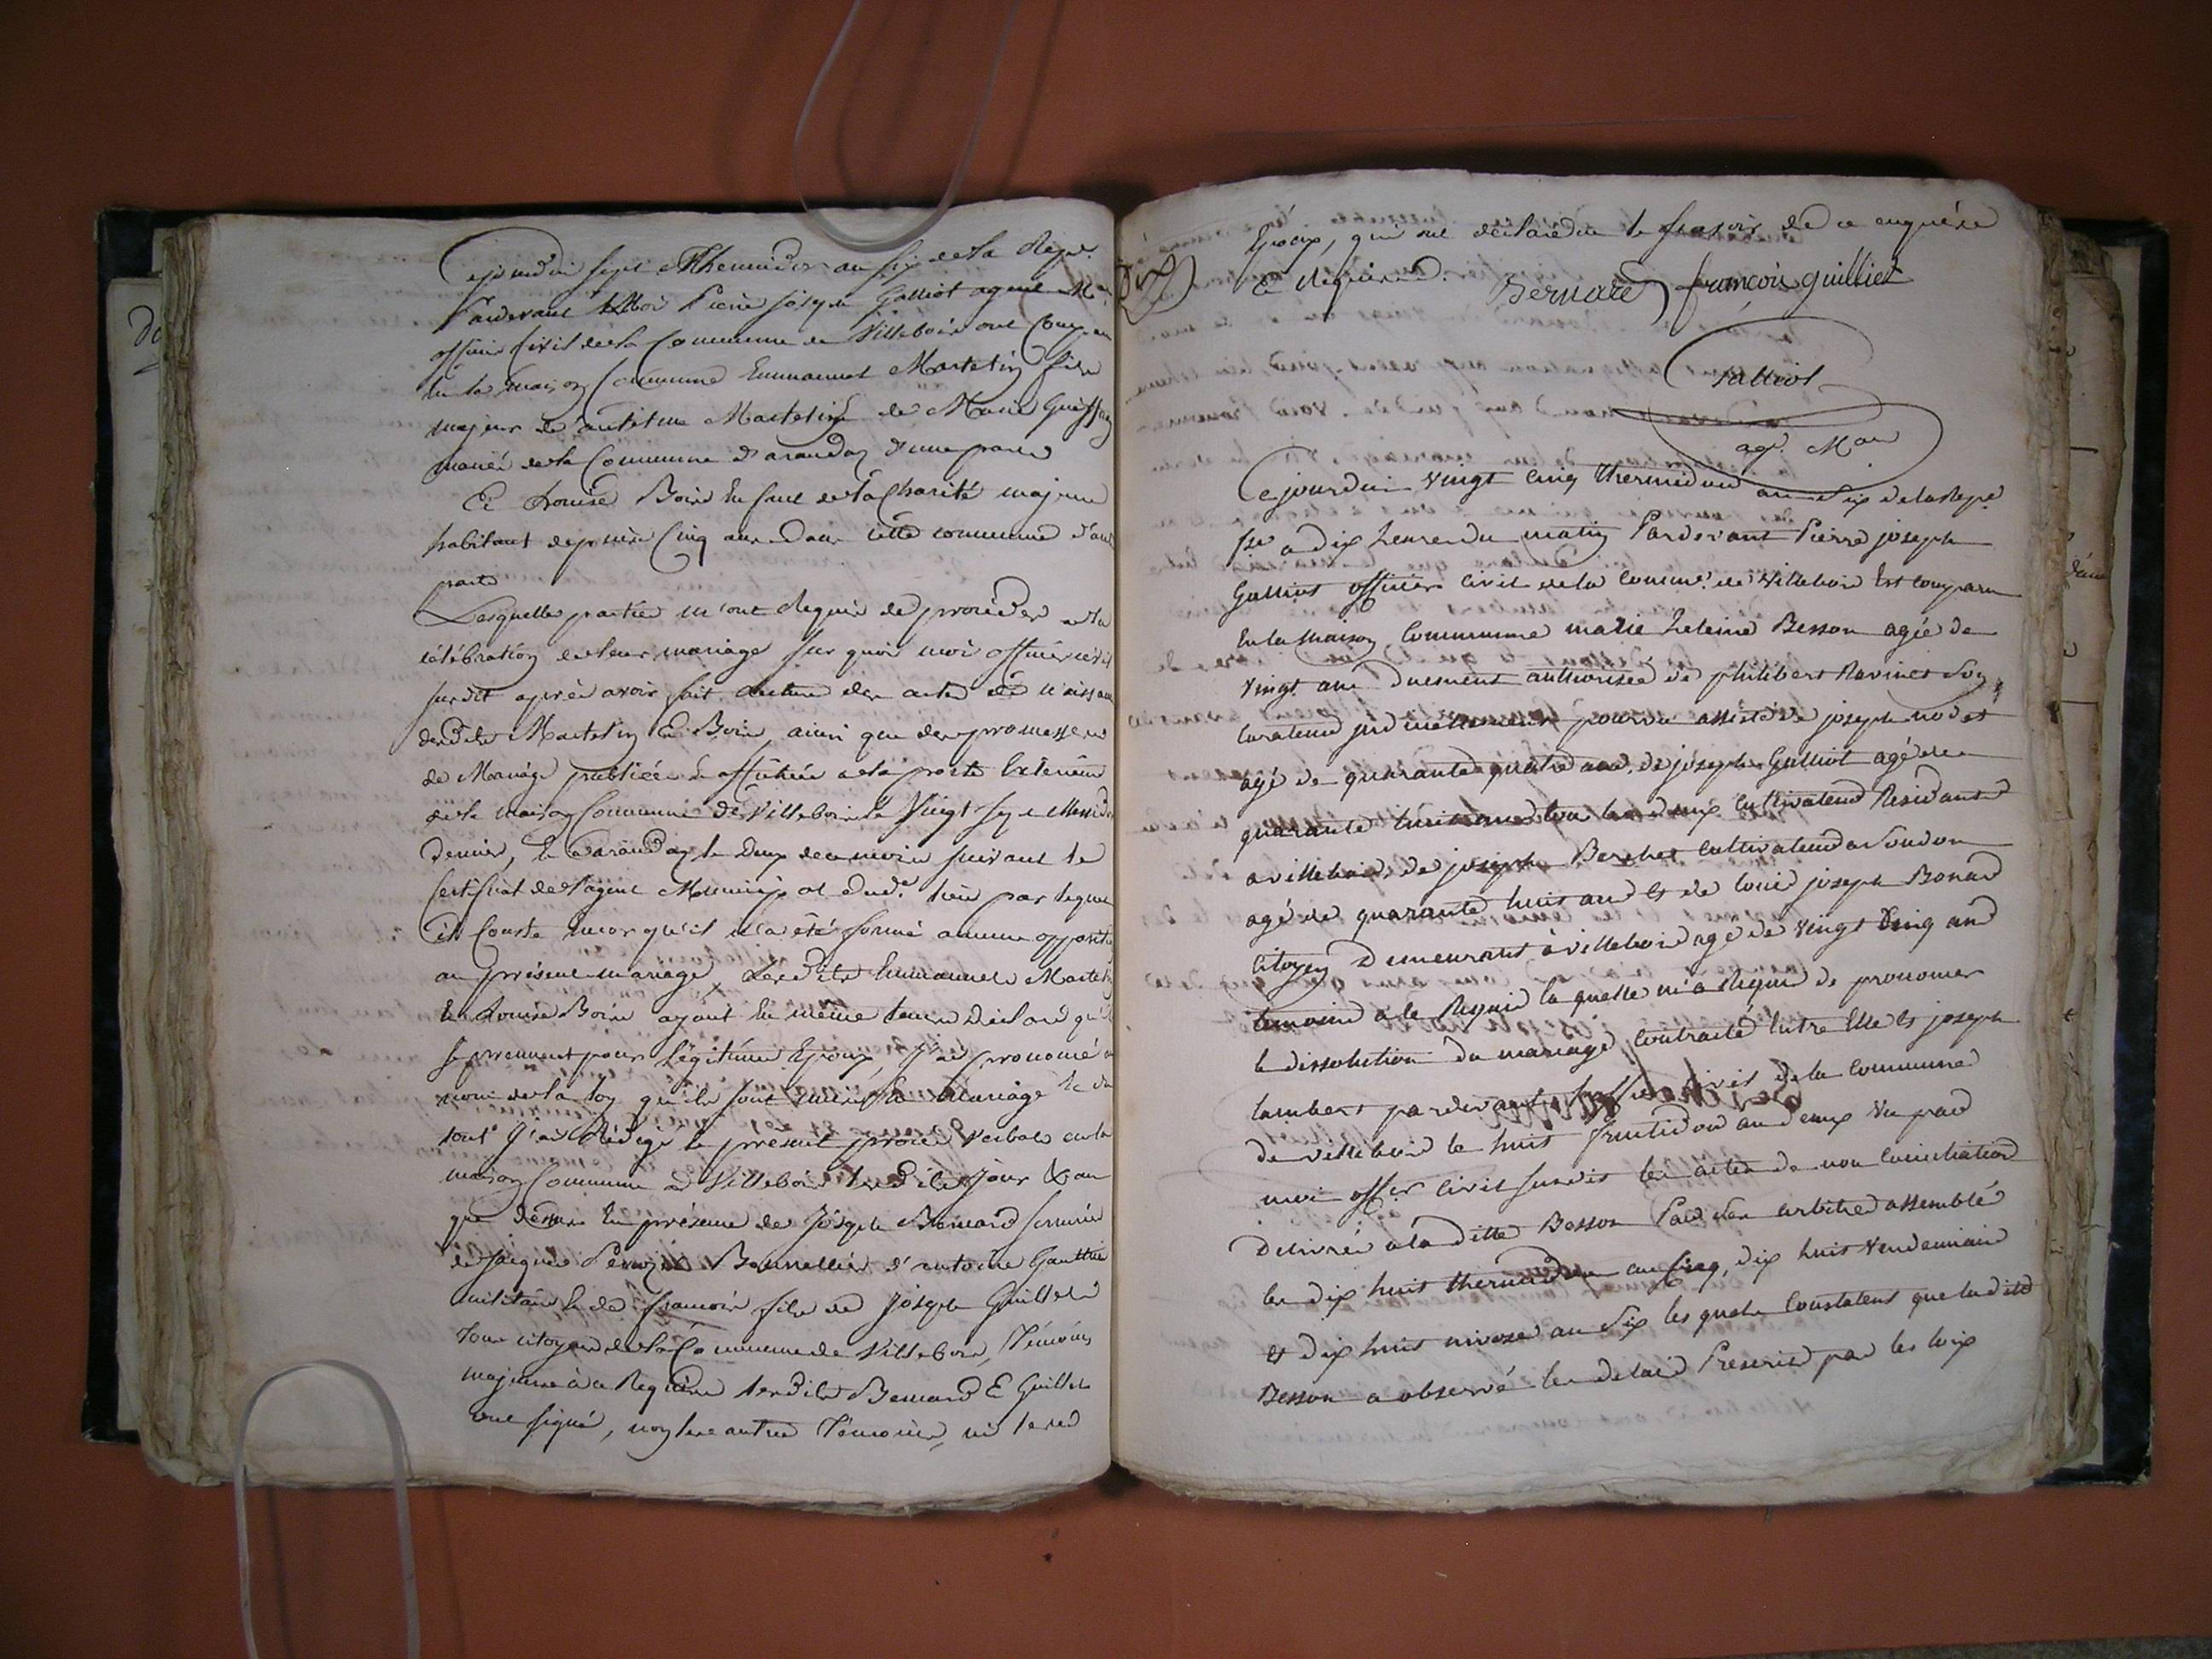 Cejourdui sept Thermidor an six de la Repe.
Pardevant Moi Pierre joseph Galliot agent Mal
officier Civil de la Commune de Villebois ont Comparu
En la maison Commune Emmanuel Martelin fils
majeur de Martelin & de Marie
de la Commune d'arandas d'une part
Et Louise Boire Enfant de la Charité majeure
habitant depuis Cinq ans dans cette commune d'autre
part
Lesquelle partie m'ont Requis de proceder a la
célébration de leur mariage sur quoi moi officier civil
susdit après avoir fait lecture des actes de Naissance
desdits Martelin Et Boire, ainsi que des promesses
de Mariage publiées & affichées a la porte Exterieure
de la maison Commune de Villebois le Vingt six Messidor
dernier, Et a arandas le Deux de ce mois suivant le
Certificat de l'agent Municipal dud. lieu par lequel
il Conste Encor qu'il n'a été formé aucune opposition
au présent mariage, Lesdits Emmanuel Martelin
Et Louise Boire ayant En même tems Déclaré qu'il
se prennent pour légitimes Epoux, J'ai prononcé au
nom de la loy qu'ils sont unis En mariage Et du
tout J'ai Rédigé le present procès verbal en la
maison Commune de Villebois lesdits Jour & an
que dessus En présence de Joseph Bernard serrurier
de Jacques Bourrellier d'antoine Gauthier
militaire & de françois fils de Joseph Guilliet
Tous citoyens de la Commune de Villebois, Témoins
majeurs à ce Requis lesdits Bernard & Guilliet
ont signé, non les autres Témoins, ni lesd
Epoux, qui ont déclaré ne le savoir de ce enquis
& Requis.
Bernard françois guilliet
Galliot
agt. Mal
Cejourdui vingt cinq thermidor an Six de la Repe
fse a dix heures du matin Pardevant Pierre joseph
Galliot officier civil de la commune de villebois Est comparu
En la maison Commune marie heleine Besson agée de
vingt ans Duement authorisée de philibert Ravinet Son
Curateur pourvu assisté de joseph nodet
agé de quarante quatre ans, de joseph Galliot agé de
quarante huit ans tous les deux Cultivateurs Residants
a villebois, de joseph Berchet cultivateur a Soudon
agé de quarante huit ans Et de louis joseph Bonard
citoyen Demeurant à villebois agé de vingt Cinq ans
temoins a ce Requis la quelle m'a Requis de prononcer
la dissolution du mariage contracté Entre Elle Et joseph
lambert pardevant l'officier civil de la Commune
de villebois le huit fructidor an deux Vu par
moi officier civil susdit les actes de non Conciliation
Délivrés à la ditte Besson Par les arbitres assemblés
les dix huit thermidor an Cinq, dix huit Vendemiaire
et dix huit nivose an Six les quels Constatent que la ditte
Besson a observé les delais Prescrits par les loix